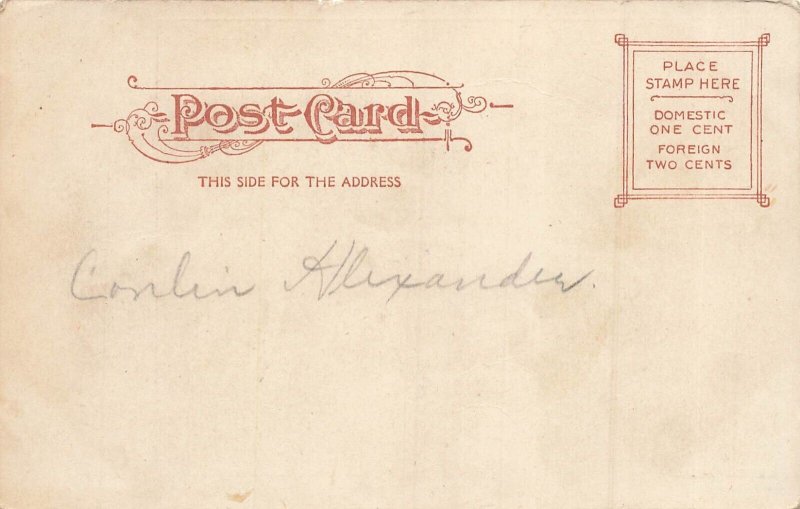 Post Card
THIS SIDE FOR THE ADDRESS
PLACE
STAMP HERE
DOMESTIC
ONE CENT
FOREIGN
TWO CENTS
Alexander.